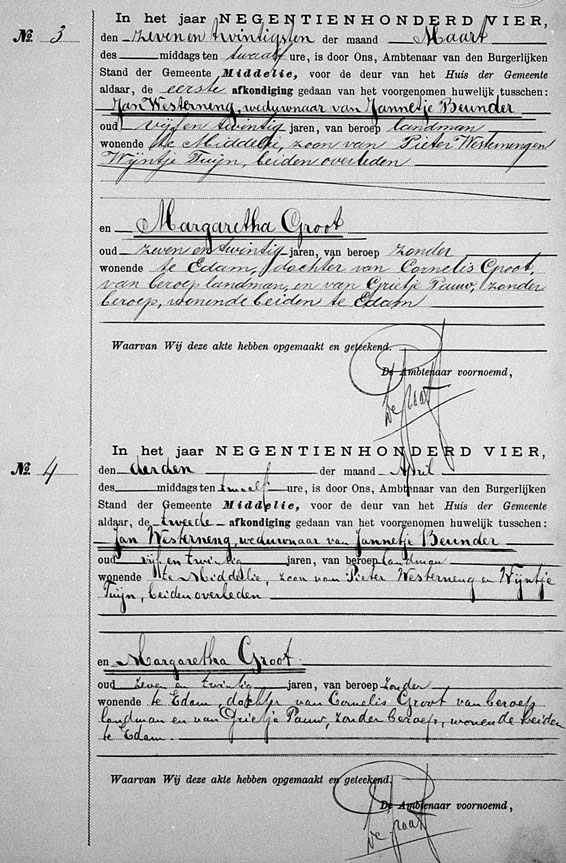 In het jaar NEGENTIENHONDERD VIER,
No 3
den zeven en twintigsten der maand Maart
des middags ten twaalf ure, is door Ons, Ambtenaar van den Burgerlijken
Stand der Gemeente Middelie, voor de deur van het Huis der Gemeente
aldaar, de eerste afkondiging gedaan van het voorgenomen huwelijk tusschen:
Jan Westerneng, weduwnaar van Jannetje Beunder
oud vijf en twintig jaren, van beroep landman
wonende te Middelie, zoon van Pieter Westerneng en
Wijntje Tuijn, beiden overleden
en Margaretha Groot
oud zeven en twintig jaren, van beroep zonder
wonende te Edam, dochter van Cornelis Groot,
van beroep landman, en van Grietje Pauw, zonder
beroep, wonende beiden te Edam
Waarvan Wij deze akte hebben opgemaakt en geteekend.
De Ambtenaar voornoemd,
In het jaar NEGENTIENHONDERD VIER,
No 4
den derden der maand April
des middags ten twaalf ure, is door Ons, Ambtenaar van den Burgerlijken
Stand der Gemeente Middelie, voor de deur van het Huis der Gemeente
aldaar, de tweede afkondiging gedaan van het voorgenomen huwelijk tusschen:
Jan Westerneng, weduwnaar van Jannetje Beunder
oud vijf en twintig jaren, van beroep landman
wonende te Middelie, zoon van Pieter Westerneng en Wijntje
Tuijn, beiden overleden
en Margaretha Groot
oud zeven en twintig jaren, van beroep zonder
wonende te Edam, dochter van Cornelis Groot van beroep
landman en van Grietje Pauw, zonder beroep, wonende beiden
te Edam
Waarvan Wij deze akte hebben opgemaakt en geteekend.
De Ambtenaar voornoemd,